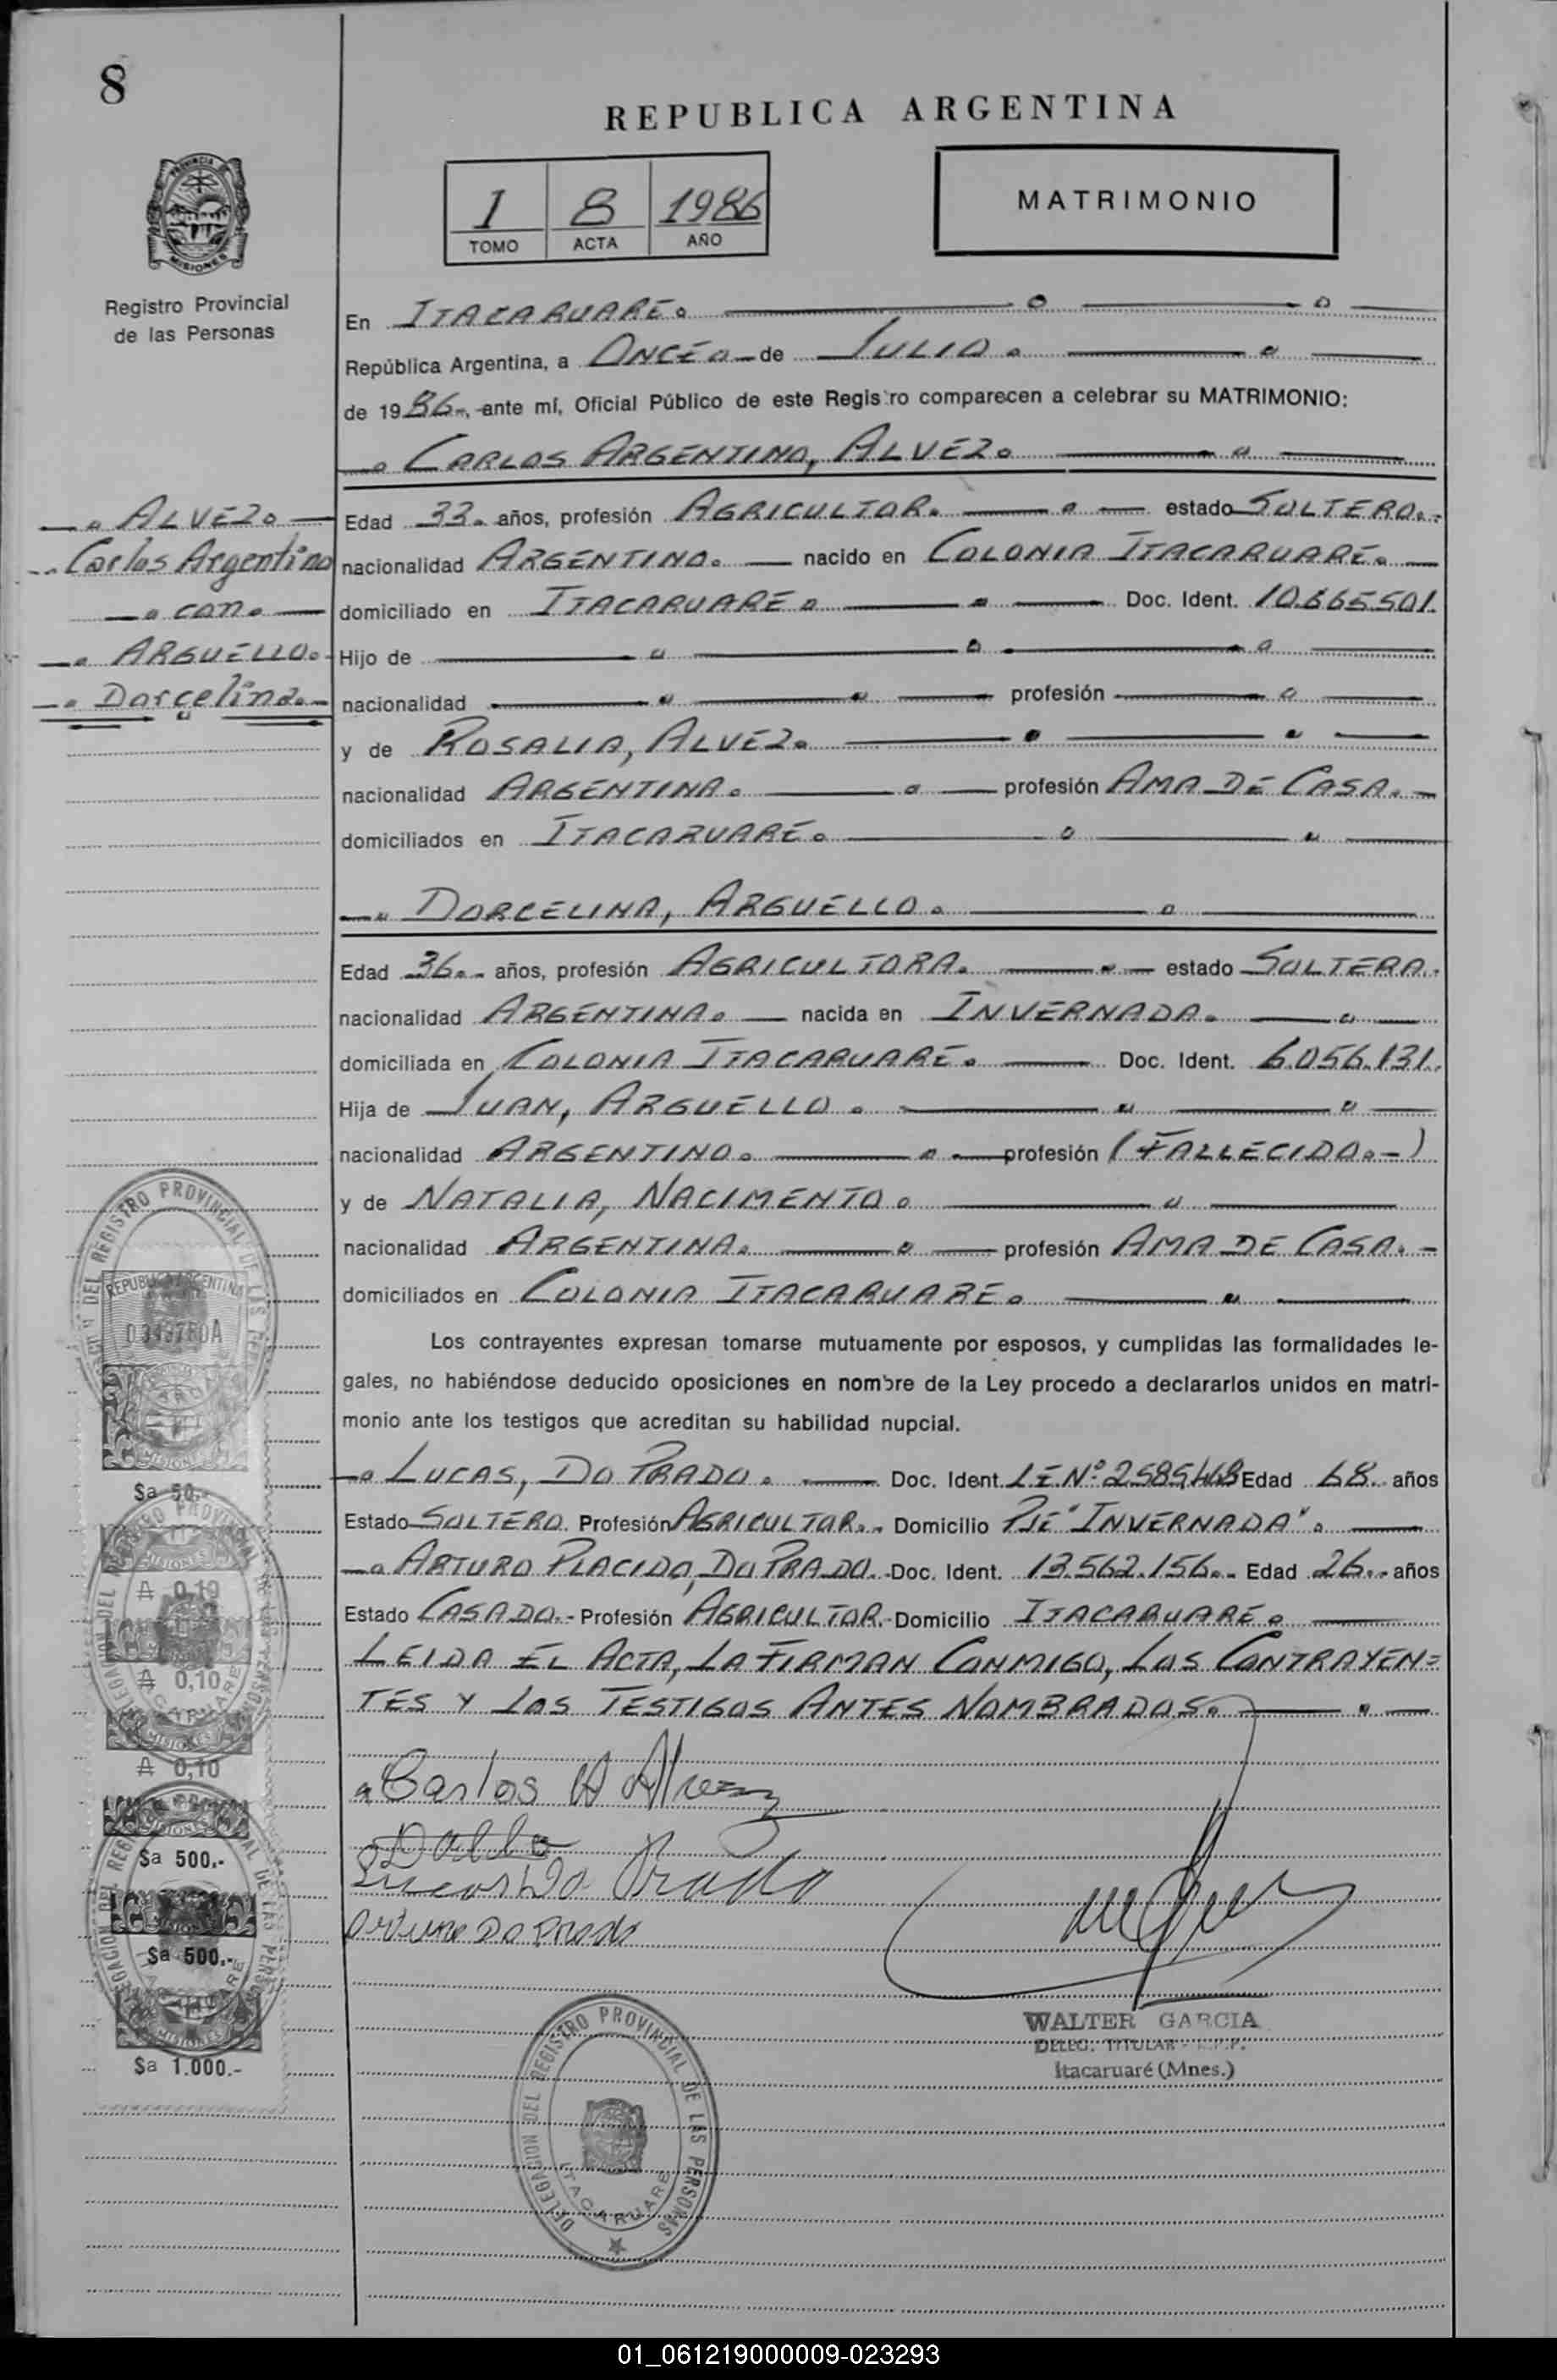 8
REPUBLICA ARGENTINA
1 8 1986
TOMO ACTA AÑO
MATRIMONIO
PROVINCIA
MISIONES
Registro Provincial
de las Personas
En ITACARUARE.
República Argentina, a ONCE.- de JULIO.
de 1986.-, ante mí, Oficial Público de este Registro comparecen a celebrar su MATRIMONIO:
CARLOS ARGENTINO, ALVEZ.
ALVEZ.
Carlos Argentino
con.
ARGUELLO.
Dorcelina.
Edad 33. años, profesión AGRICULTOR. estado SOLTERO.
nacionalidad ARGENTINO. nacido en COLONIA ITACARUARE.
domiciliado en ITACARUARE. Doc. Ident. 10.665.501.
Hijo de
nacionalidad profesión
y de ROSALIA, ALVEZ.
nacionalidad ARGENTINA. profesión AMA DE CASA.-
domiciliados en ITACARUARE.
DORCELINA, ARGUELLO.
Edad 36.- años, profesión AGRICULTORA. estado SOLTERA.
nacionalidad ARGENTINA. nacida en INVERNADA.
domiciliada en COLONIA ITACARUARE. Doc. Ident. 6.056.131.
Hija de JUAN, ARGUELLO.
nacionalidad ARGENTINO. profesión (FALLECIDO.-)
y de NATALIA, NACIMENTO.
nacionalidad ARGENTINA. profesión AMA DE CASA.-
domiciliados en COLONIA ITACARUARE.
Los contrayentes expresan tomarse mutuamente por esposos, y cumplidas las formalidades le-
gales, no habiéndose deducido oposiciones en nombre de la Ley procedo a declararlos unidos en matri-
monio ante los testigos que acreditan su habilidad nupcial.
LUCAS, DO PRADO. Doc. Ident. L.E.Nº Edad 68. años
Estado SOLTERO. Profesión AGRICULTOR.- Domicilio PJE "INVERNADA".
ARTURO PLACIDO, DO PRADO.- Doc. Ident. 13.562.156.- Edad 26.- años
Estado CASADO.- Profesión AGRICULTOR.- Domicilio ITACARUARE.
LEIDA EL ACTA, LA FIRMAN CONMIGO, LOS CONTRAYEN=
TES Y LOS TESTIGOS ANTES NOMBRADOS.
Carlos A Alvez
Lucas Do Prado
Arturo Do Prado
WALTER GARCIA
DELEG. TITULAR - R.P.P.
Itacaruaré (Mnes.)
DELEGACION DEL REGISTRO PROVINCIAL DE LAS PERSONAS
ITACARUARE
REPUBLICA ARGENTINA
MISIONES
$a 50.-
MISIONES
₳ 0,10
₳ 0,10
₳ 0,10
MISIONES
$a 500.-
MISIONES
$a 500.-
MISIONES
$a 1.000.-
01_061219000009-023293